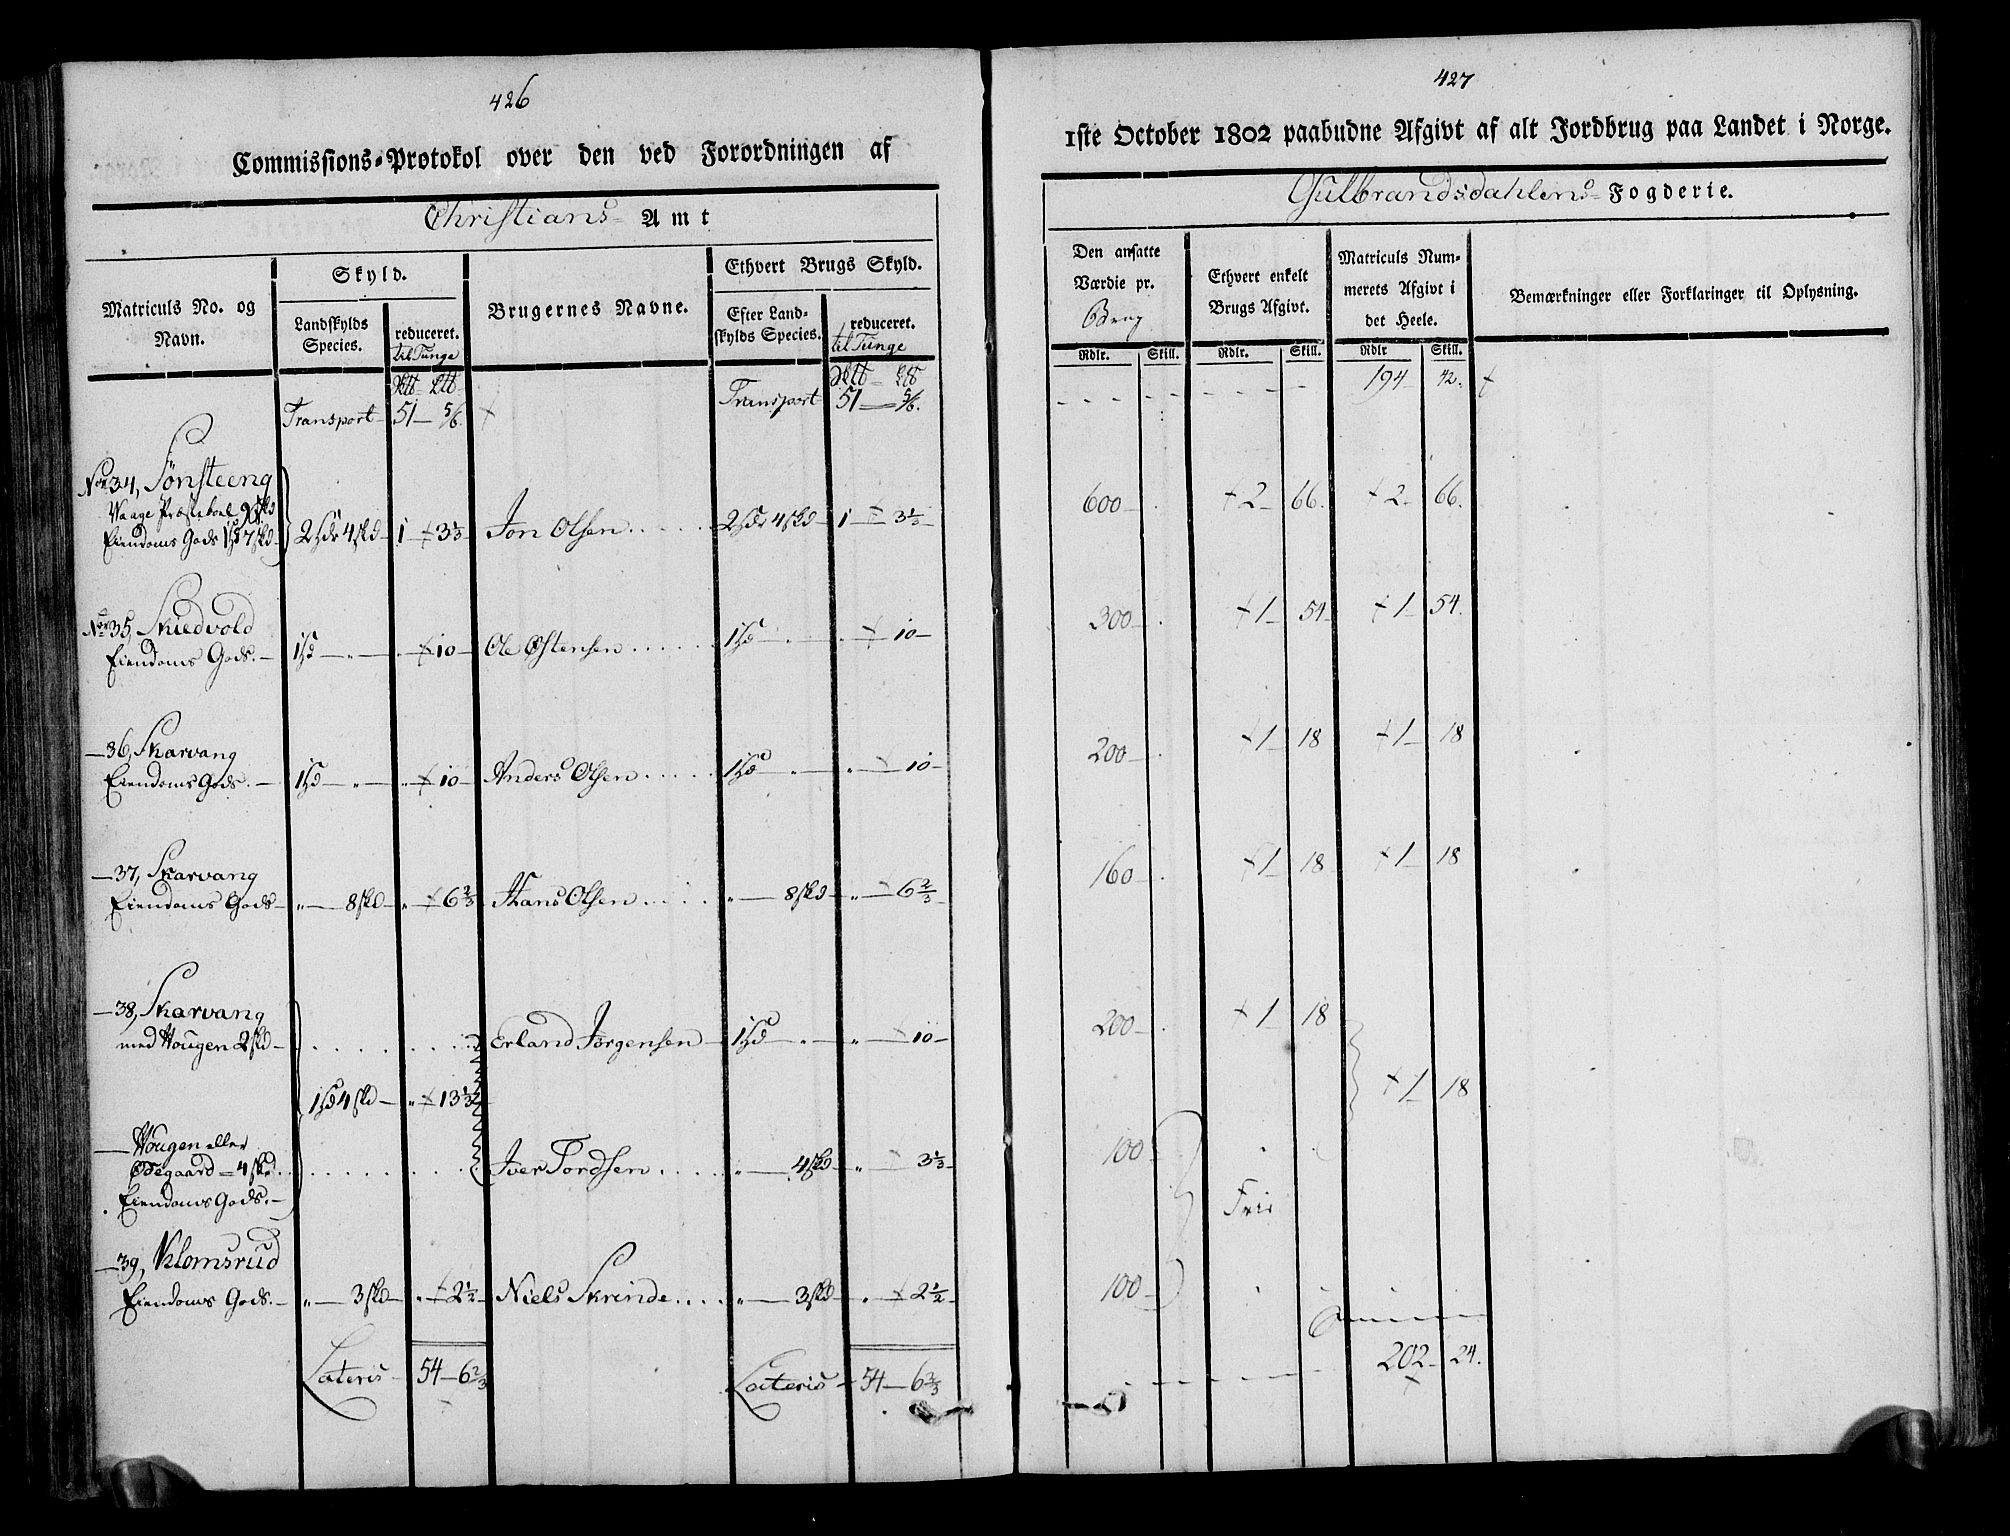 426
Commissions-Protokol over den ved Forordningen af
Christians Amt
Matriculs No. og Navn.
Skyld.
Landskylds Species.
reduceret. til Tunge
Brugernes Navne.
Ethvert Brugs Skyld.
Efter Landskylds Species.
reduceret. til Tunge
Transport 51 — 5/6. Transport 51 — 5/6.
No 34, Sønsteeng
Vaage Præsteboel
Eiendoms Gods 7 skd 2 4 skd 1 3 1/3 Jon Olsen 2 4 skd 1 3 1/3
No 35, Skiedvold
Eiendoms Gods. 1 10 Ole Østensen 1 10
— 36, Skarvang
Eiendoms Gods. 1 10 Anders Olsen 1 10
— 37, Skarvang
Eiendoms Gods 8 skd 6 2/3 Hans Olsen 8 skd 6 2/3
— 38, Skarvang
med Hougen 2 skd Erland Jørgensen 1 10
1 4 skd 13 1/3
— Hougen eller
Ødegaard = 4 skd. Iver Tordsen 4 skd 3 1/3
Eiendoms Gods.
— 39, Klomsrud
Eiendoms Gods. 3 skd 2 1/2 Niels Skrinde 3 skd 2 1/2
Lateris 54 — 6 2/3 Lateris 54 — 6 2/3
427
1ste October 1802 paabudne Afgivt af alt Jordbrug paa Landet i Norge.
Gulbrandsdahlens Fogderie.
Den ansatte Værdie pr. Brug
Ethvert enkelt Brugs Afgivt.
Matriculs Nummerets Afgivt i det Heele.
Bemærkninger eller Forklaringer til Oplysning.
Rdlr. Skill. Rdlr. Skill. Rdlr Skill.
194 42.
600 2 66. 2 66.
300 1 54 1 54.
200 1 18 1 18
160 1 18 1 18
200 1 18
1 18
100
Frie
100
202 24.